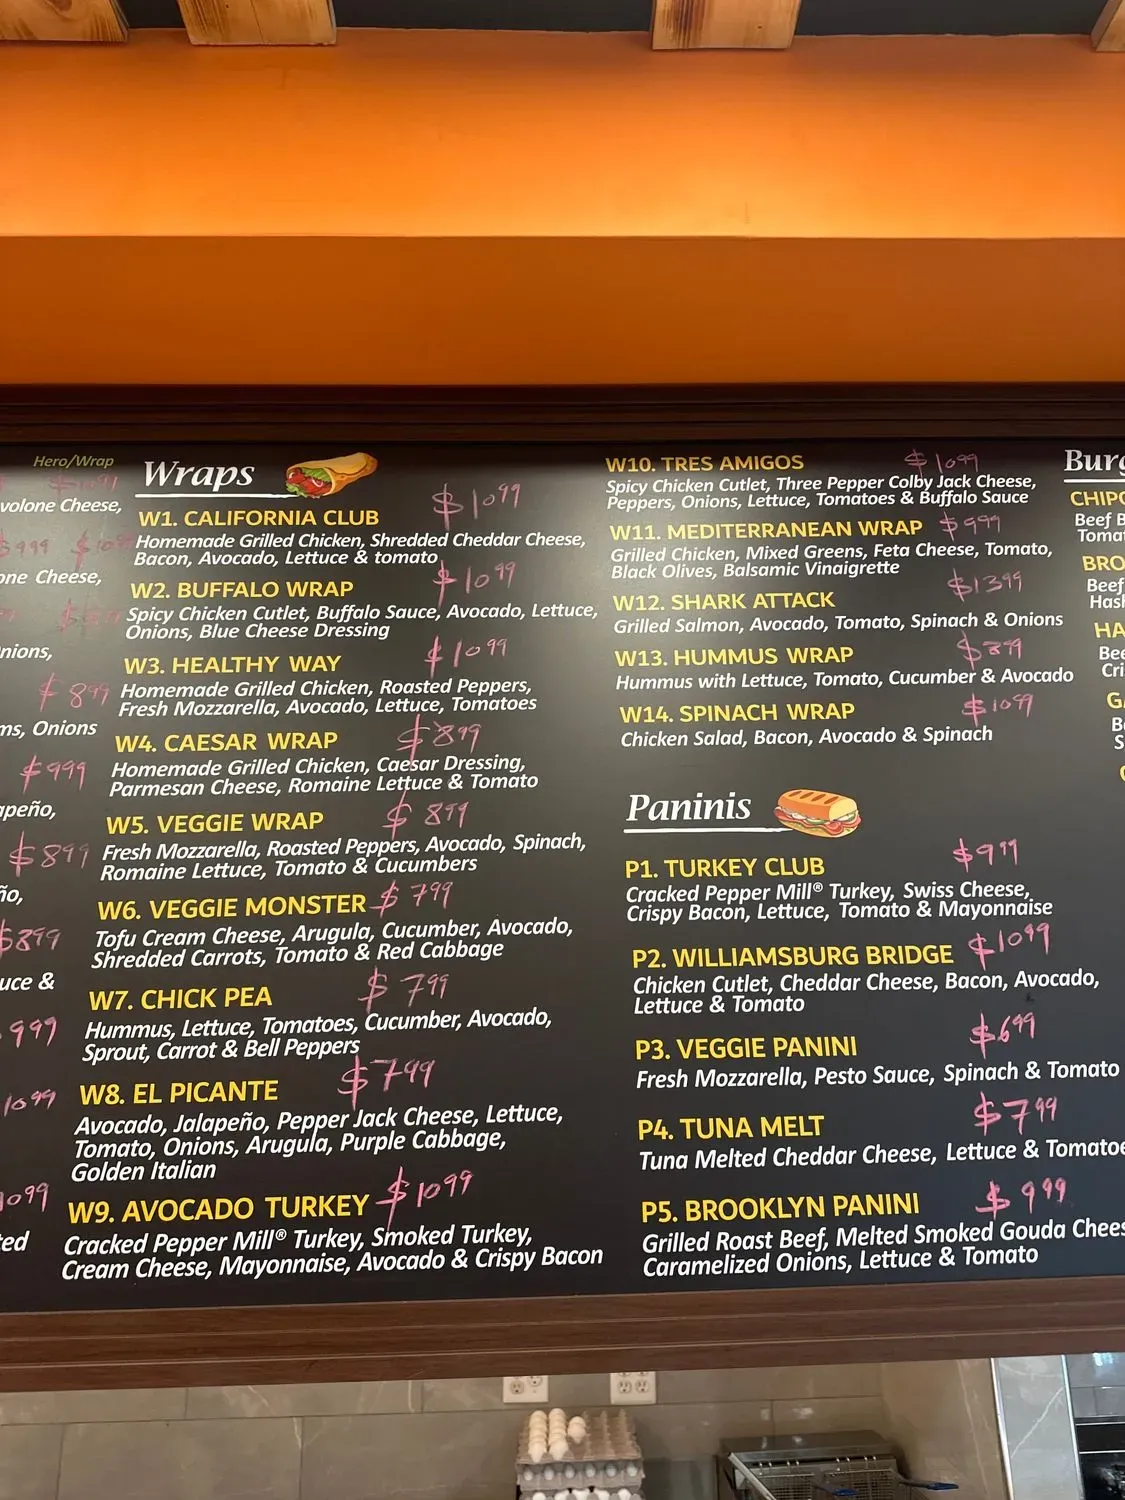 Hero/Wrap
$1099
volone Cheese,
$999 $10
one Cheese,
nions,
$899
ms, Onions
$999
apeño,
$899
ño,
$899
uce &
999
1099
1099
ted
Wraps
W1. CALIFORNIA CLUB $1099
Homemade Grilled Chicken, Shredded Cheddar Cheese,
Bacon, Avocado, Lettuce & tomato
W2. BUFFALO WRAP $1099
Spicy Chicken Cutlet, Buffalo Sauce, Avocado, Lettuce,
Onions, Blue Cheese Dressing
W3. HEALTHY WAY $1099
Homemade Grilled Chicken, Roasted Peppers,
Fresh Mozzarella, Avocado, Lettuce, Tomatoes
W4. CAESAR WRAP $899
Homemade Grilled Chicken, Caesar Dressing,
Parmesan Cheese, Romaine Lettuce & Tomato
W5. VEGGIE WRAP $899
Fresh Mozzarella, Roasted Peppers, Avocado, Spinach,
Romaine Lettuce, Tomato & Cucumbers
W6. VEGGIE MONSTER $799
Tofu Cream Cheese, Arugula, Cucumber, Avocado,
Shredded Carrots, Tomato & Red Cabbage
W7. CHICK PEA $799
Hummus, Lettuce, Tomatoes, Cucumber, Avocado,
Sprout, Carrot & Bell Peppers
W8. EL PICANTE $799
Avocado, Jalapeño, Pepper Jack Cheese, Lettuce,
Tomato, Onions, Arugula, Purple Cabbage,
Golden Italian
W9. AVOCADO TURKEY $1099
Cracked Pepper Mill® Turkey, Smoked Turkey,
Cream Cheese, Mayonnaise, Avocado & Crispy Bacon
W10. TRES AMIGOS $1099
Spicy Chicken Cutlet, Three Pepper Colby Jack Cheese,
Peppers, Onions, Lettuce, Tomatoes & Buffalo Sauce
W11. MEDITERRANEAN WRAP $999
Grilled Chicken, Mixed Greens, Feta Cheese, Tomato,
Black Olives, Balsamic Vinaigrette
W12. SHARK ATTACK $1399
Grilled Salmon, Avocado, Tomato, Spinach & Onions
W13. HUMMUS WRAP $899
Hummus with Lettuce, Tomato, Cucumber & Avocado
W14. SPINACH WRAP $1099
Chicken Salad, Bacon, Avocado & Spinach
Paninis
P1. TURKEY CLUB $999
Cracked Pepper Mill® Turkey, Swiss Cheese,
Crispy Bacon, Lettuce, Tomato & Mayonnaise
P2. WILLIAMSBURG BRIDGE $1099
Chicken Cutlet, Cheddar Cheese, Bacon, Avocado,
Lettuce & Tomato
P3. VEGGIE PANINI $699
Fresh Mozzarella, Pesto Sauce, Spinach & Tomato
P4. TUNA MELT $799
Tuna Melted Cheddar Cheese, Lettuce & Tomatoe
P5. BROOKLYN PANINI $999
Grilled Roast Beef, Melted Smoked Gouda Chees
Caramelized Onions, Lettuce & Tomato
Burg
CHIPO
Beef B
Tomat
BRO
Beef
Hash
HA
Bee
Cri
GA
Be
S